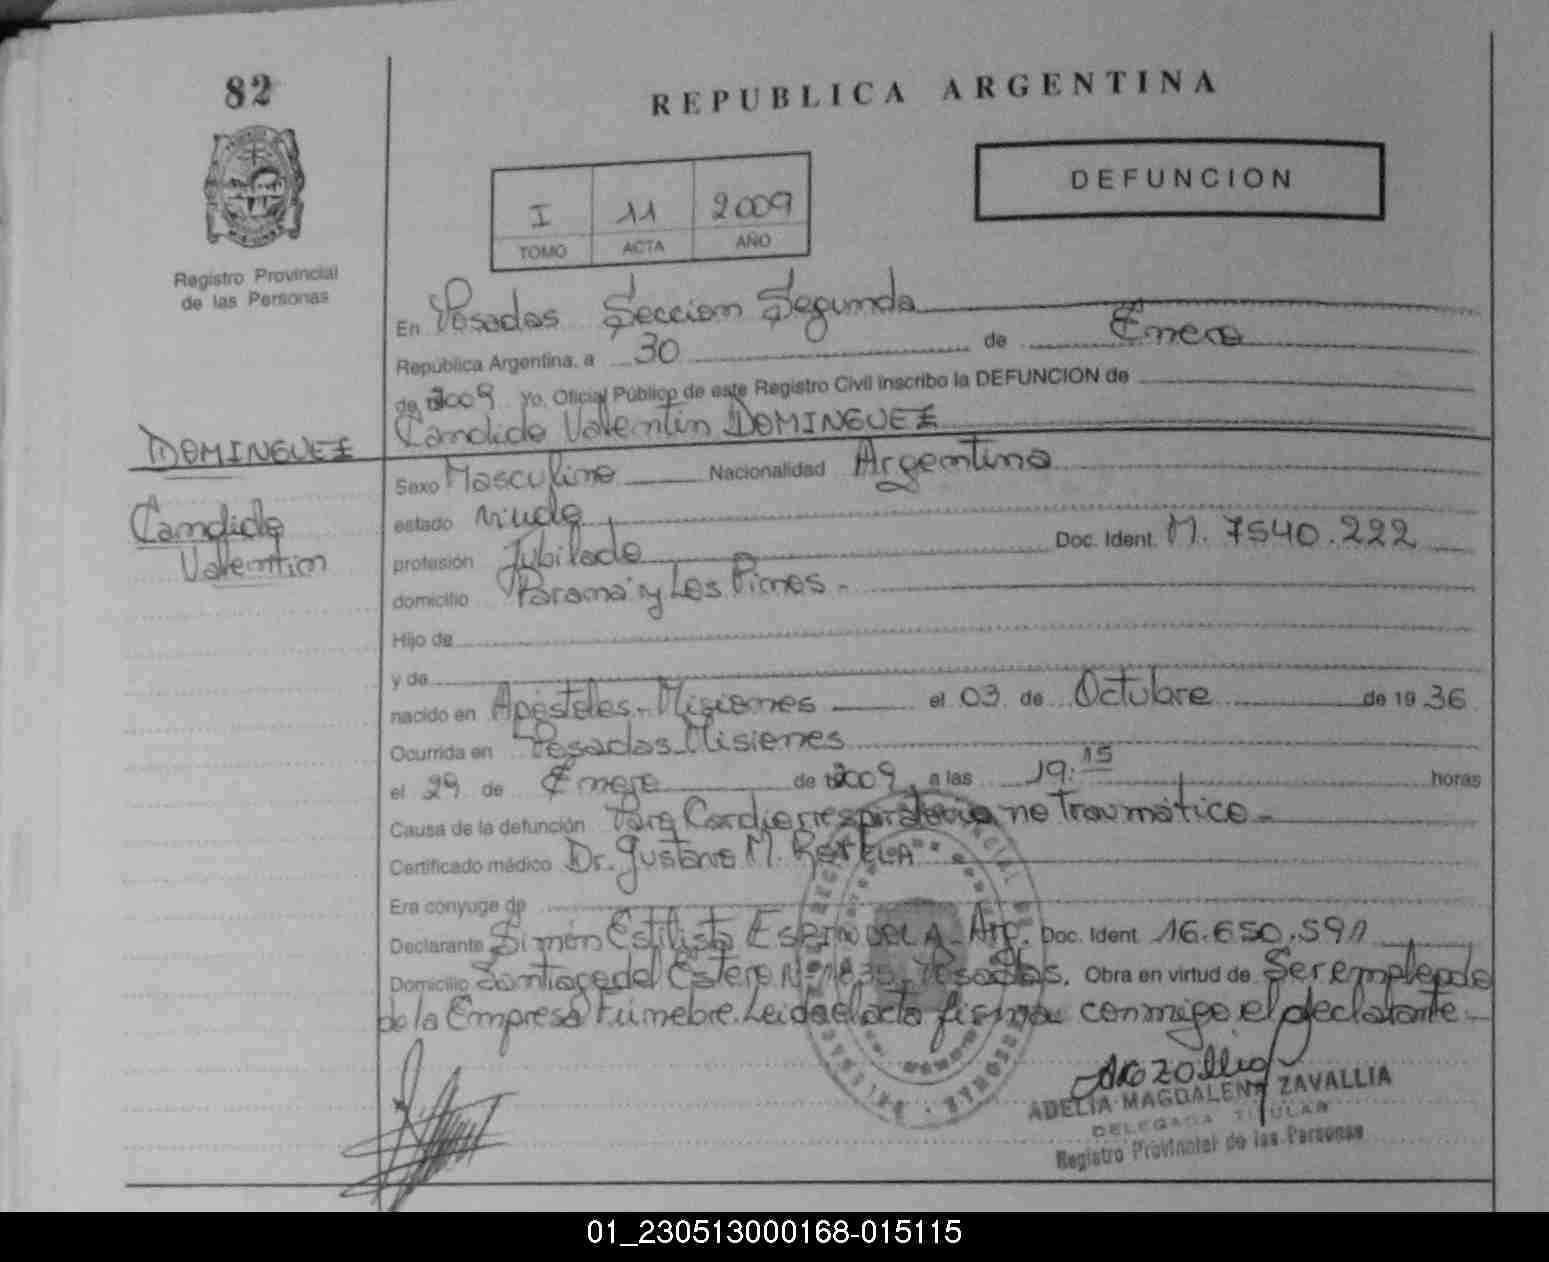 82
REPUBLICA ARGENTINA
DEFUNCION
I 11 2009
TOMO ACTA AÑO
Registro Provincial
de las Personas
En Posadas Seccion Segunda
República Argentina, a 30 de Enero
de 2009 Yo, Oficial Público de este Registro Civil inscribo la DEFUNCION de
Candido Valentin DOMINGUEZ
DOMINGUEZ
Candido
Valentin
Sexo Masculino Nacionalidad Argentina
estado Viudo
profesión Jubilado Doc. Ident. M. 7540.222
domicilio Parana y Los Pinos -
Hijo de
y de
nacido en Apóstoles - Misiones el 03 de Octubre de 1936
Ocurrida en Posadas Misiones
el 29 de Enero de 2009 a las 19:15 horas
Causa de la defunción Paro Cardiorrespiratorio no Traumático -
Certificado médico Dr. Gustavo M.
Era cónyuge de
Declarante Simón Doc. Ident. 16.650.591
Domicilio Santiago del Estero Posadas. Obra en virtud de Ser empleado
de la Empresa Fúnebre. Leida el acta firma conmigo el declarante -
ADELIA MAGDALENA ZAVALLIA
DELEGADA TITULAR
Registro Provincial de las Personas
01_230513000168-015115